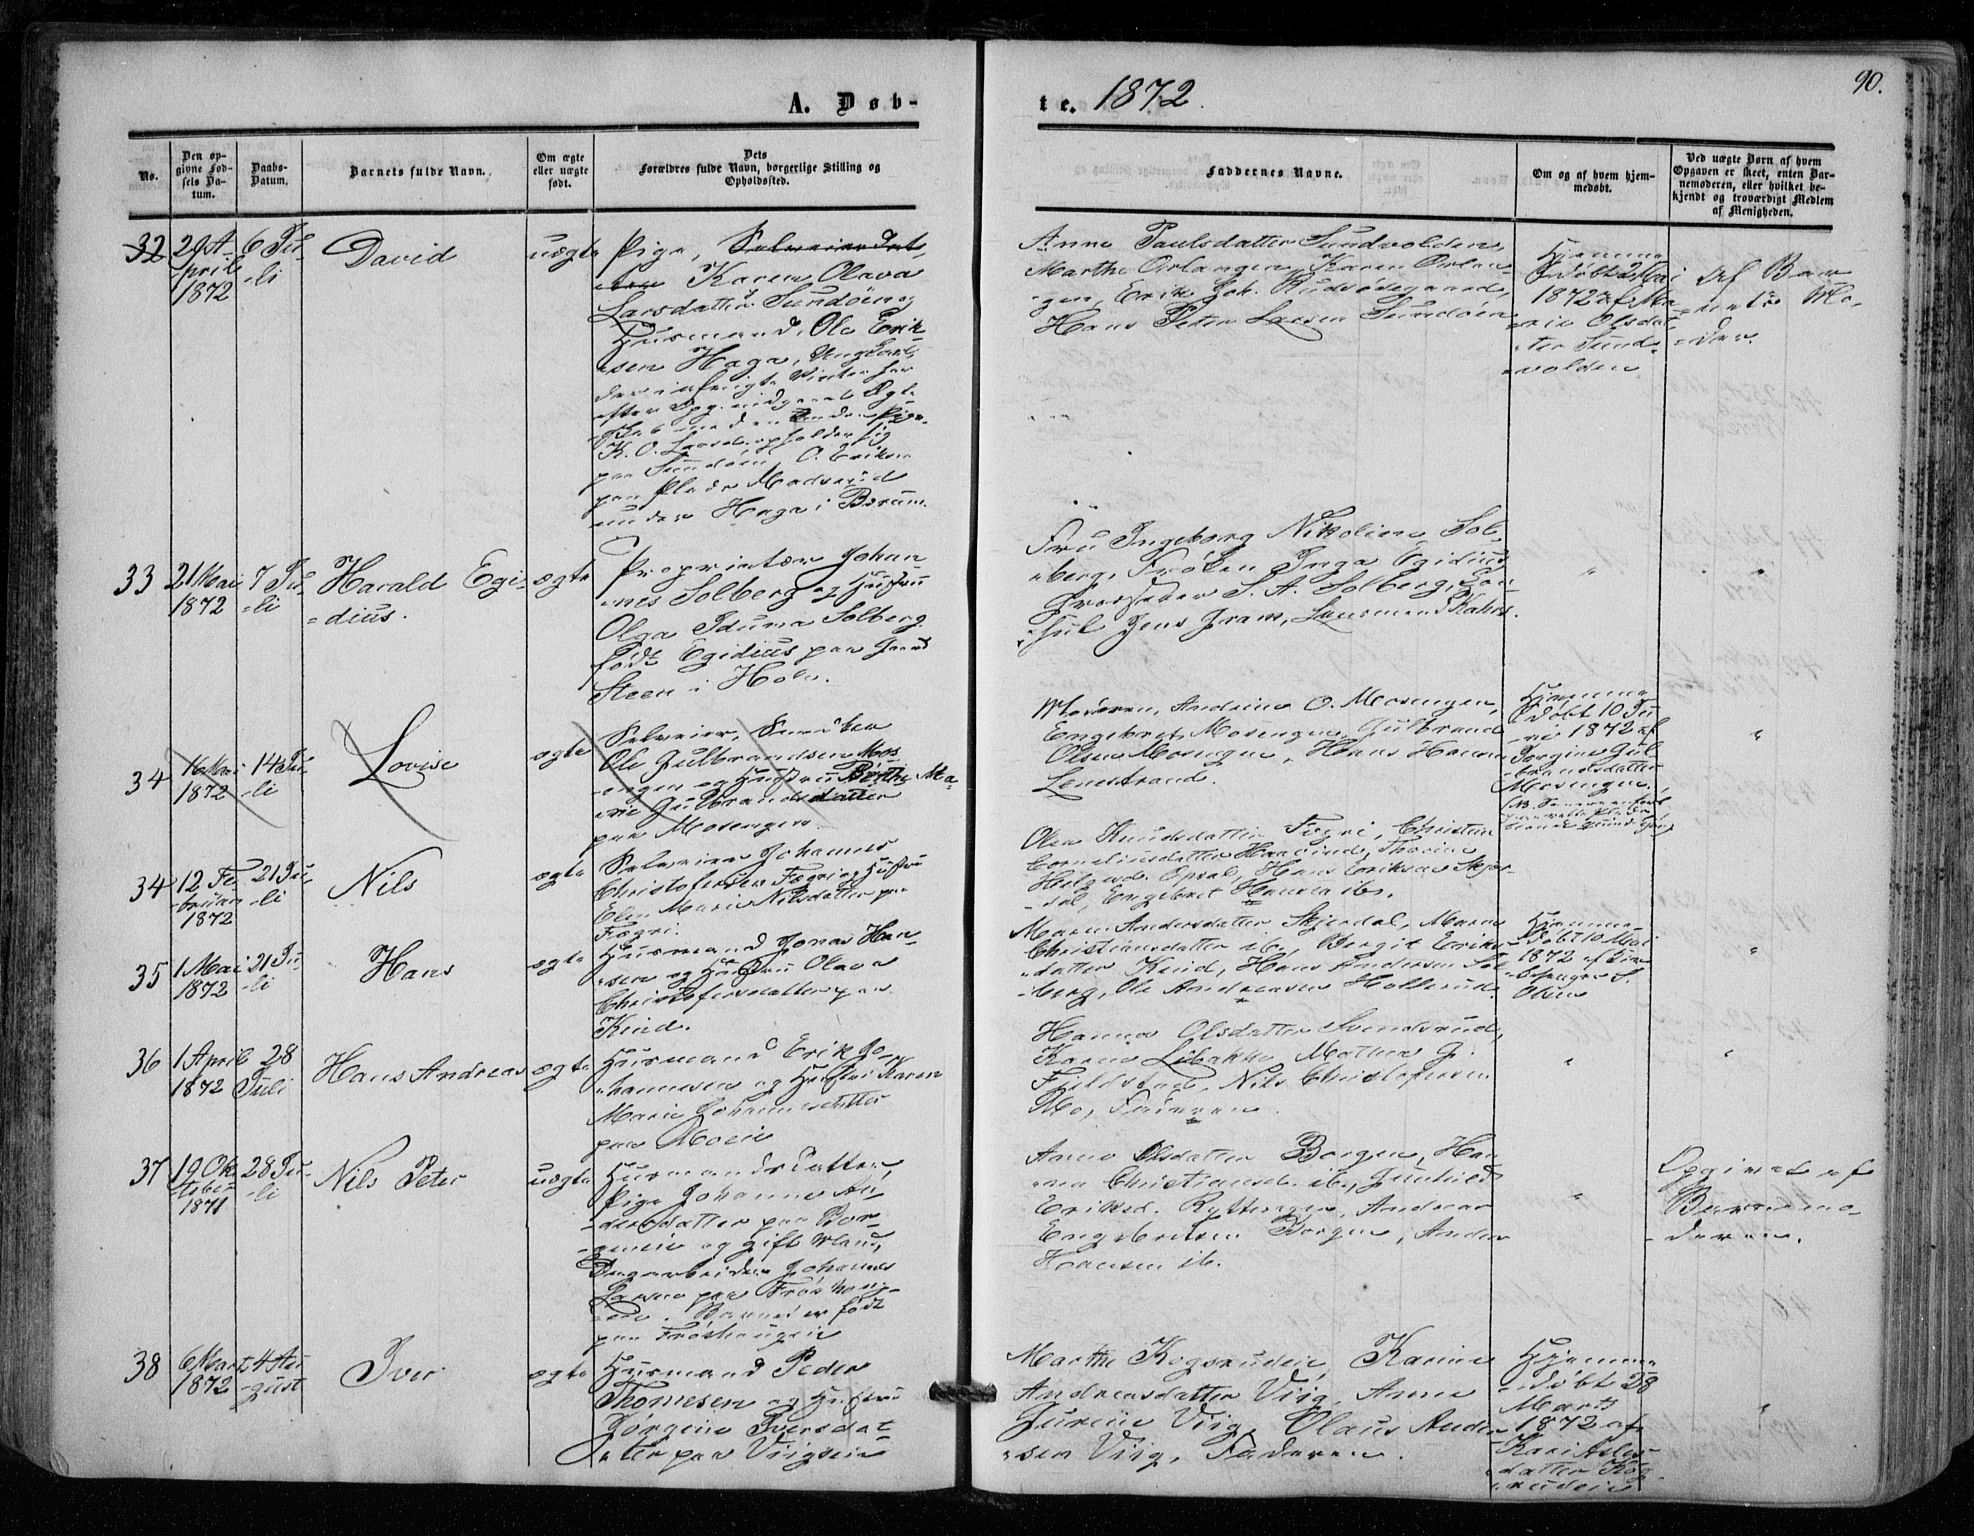 A. Døb-
te. 1872.
90.
No.
Den op-
givne Fød-
sels Da-
tum.
Daabs-
Datum.
Barnets fulde Navn.
Om ægte
eller uægte
født.
Dets
Forældres fulde Navn, borgerlige Stilling og
Opholdssted.
Faddernes Navne.
Om og af hvem hjem-
medøbt.
Ved uægte Børn af hvem
Opgaven er skeet, enten Bar-
nemoderen, eller hvilket be-
kjendt og troværdigt Medlem
af Menigheden.
32
29 A-
pril
1872
6 Ju-
-li
David
uægte
Pige,
Karen Olava
Larsdatter Sundøen og
Husmand, Ole Erik-
sen Haga, Ungkarl,
K. O. Larsd. opholder sig
paa Sundøen O. Eriksen
paa Plads Madserud
under Haga i Bærum.
Anne Paulsdatter Sundvolden,
Marthe Orlangen, Karen Orlan-
gen, Erik Joh. Rudsødegaard,
Hans Peter Larsen Sundøen
Hjemme-
døbt 2 Mai
1872 af Ma-
rie Olsdat-
ter Sund-
volden
Af Bar-
nets Mo-
der.
33
21 Mai
1872
7 Ju-
-li
Harald Egi-
-dius.
ægte
Proprietær Johan-
nes Solberg og Hustru
Olga Iduna Solberg
født Egidius paa Gaard
Steen i Hole.
Fru Ingeborg Nikoline Sol-
berg, Frøken Inga Egidius,
Grosserer S. A. Solberg, Con-
sul Jens Gram, Lensmand Kahrs.
"
"
34
16 Mai
1872
14 Ju-
li
Lovise
ægte
Selveier, Snedker
Ole Gulbrandsen Mos-
engen og Hustru Berthe Ma-
rie Gulbrandsdatter
paa Mosengen.
Moderen, Andrine O. Mosengen,
Engebret Mosengen, Gulbrand
Olsen Mosengen, Hans Hansen
Lenestrand.
Hjemme-
døbt 10 Ju-
ni 1872 af
Jorgine Gul-
brandsdatter
Mosengen.
"
34
12 Fe-
bruar
1872
21 Ju-
-li
Nils
ægte
Selveier Johannes
Christofersen Fægri og Hustru
Elen Marie Nilsdatter paa
Fægri.
Olea Knudsdatter Fægri, Christine
Corneliusdatter
Helgesd. Opsal, Hans Eriksen Skjør-
dal, Engebret Hansen ib.
35
1 Mai
1872
21 Ju-
-li
Hans
ægte
Husmand Jonas Han-
sen og Hustru Olava
Christofersdatter paa
Kind.
Maren Andersdatter Skjærdal, Maren
Christiansdatter ib., Bergit Eriks-
datter Kind, Hans Andersen Sol-
berg, Ole Andreasen Hollerud.
Hjemme-
døbt 10 Mai
1872 af
S.
Olsen
"
36
1 April
1872
28
Juli
Hans Andreas
ægte
Husmand Erik Jo-
hannesen og Hustru Karen
Marie Johannesdatter
paa Moeie
Hanna Olsdatter Svendsrud,
Karen Libakke, Mathea G.
Fjeldstad, Nils Christophersen
Mo, Faderen.
"
"
37
19 Ok-
tober
1871
28 Ju-
-li
Nils Peter
uægte
Husmandsdatter,
Pige Johanne An-
dersdatter paa Bor-
geneie og gift Mand,
Dagarbeider Johannes
Larsen paa Frøshoug-
eie. Barnet er født
paa Frøshaugeie
Anne Olsdatter Borgen, Han-
na Christiansd. ib., Gunhild
Eriksd. Rytterager, Andreas
Engebretsen Borgen, Anders
Hansen ib.
"
Opgivet af
Barnemo-
deren.
38
6 Marts
1872
4 Au-
-gust
Iver
ægte
Husmand Peder
Thomesen og Hustru
Jørgine Iversdat-
ter paa Viigseie
Marthe Kogsrudeie, Karine
Andreasdatter Viig, Anne
Gurine Viig, Olaus Ander-
sen Viig, Faderen.
Hjemme-
døbt 28
Marts
1872 af
Kari Asles-
datter Kog-
srudeie
"